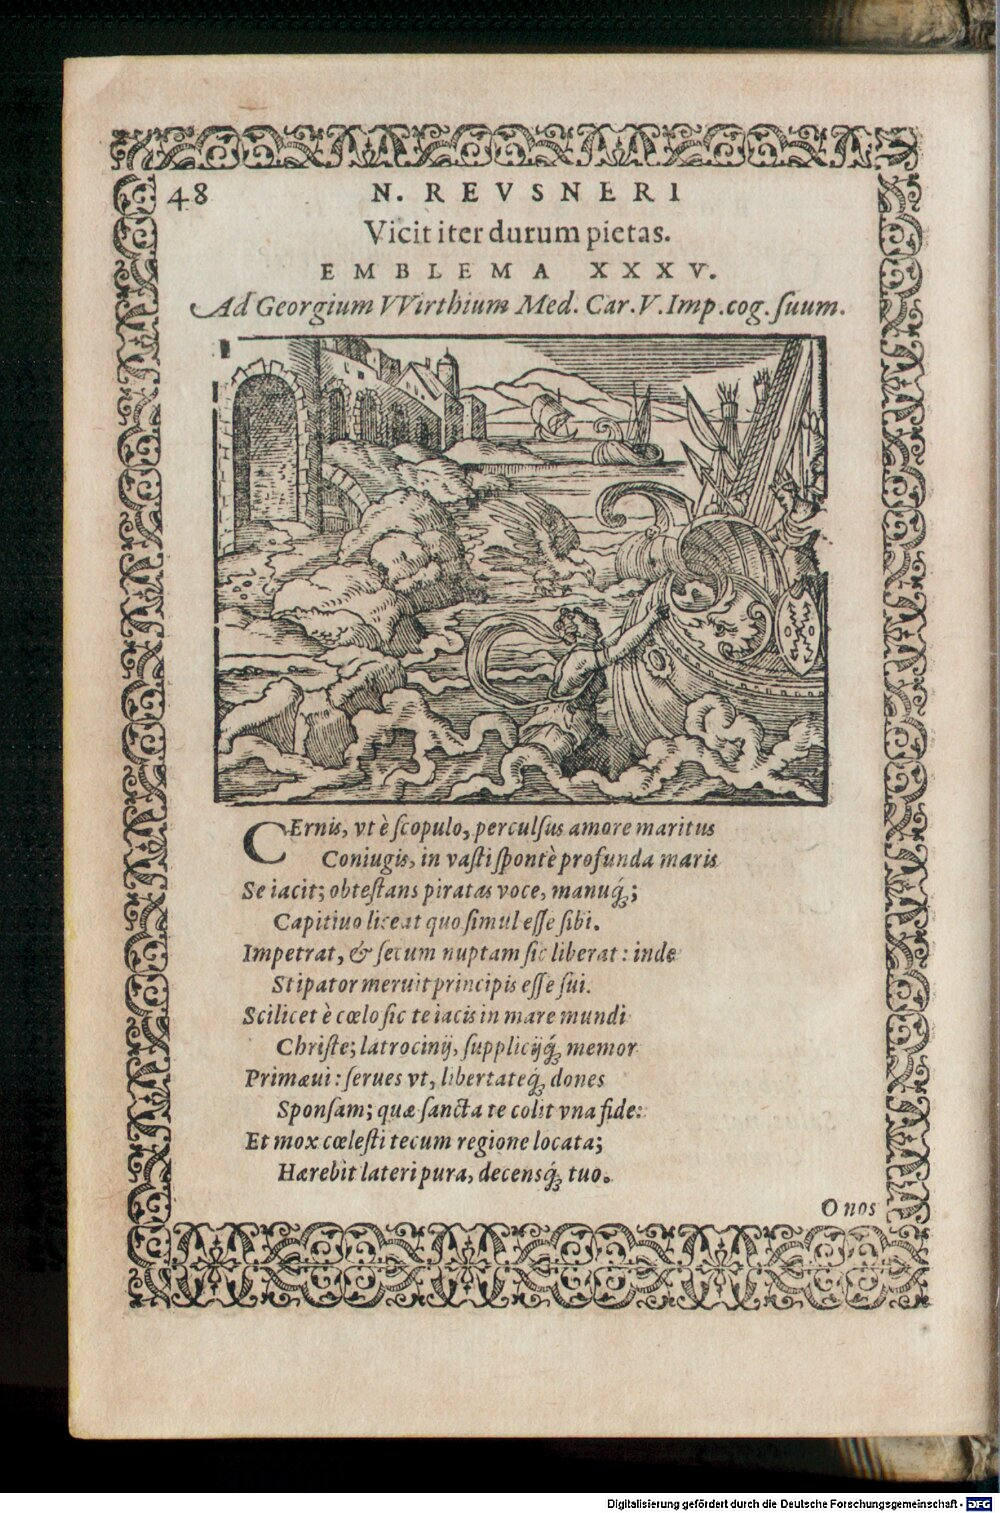 48
N. REVSNERI
Vicit iter durum pietas.
EMBLEMA XXXV.
Ad Georgium VVirthium Med. Car. V. Imp. cog. ſuum.
CErnis, vt è ſcopulo, perculſus amore maritus
Coniugis, in vaſti ſpontè profunda maris
Se iacit; obteſtans piratas voce, manuq́;;
Capitiuo liceat quo ſimul eſſe ſibi.
Impetrat, & ſecum nuptam ſic liberat: inde
Stipator meruit principis eſſe ſui.
Scilicet è cœlo ſic te iacis in mare mundi
Chriſte; latrocinij, ſupplicijq́; memor
Primæui: ſerues vt, libertateq́; dones
Sponſam; quæ ſancta te colit vna fide:
Et mox cœleſti tecum regione locata;
Hærebit lateri pura, decensq́; tuo.
O nos
Digitalisierung gefördert durch die Deutsche Forschungsgemeinschaft - DFG